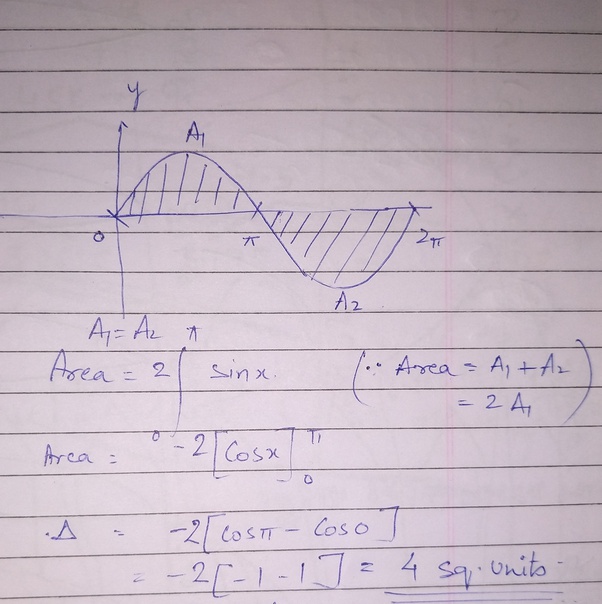 y
A₁
0 π 2π
A₂
A₁ = A₂
Area = 2 ∫₀^π sinx. (∵ Area = A₁ + A₂
= 2 A₁)
Area = -2[Cosx]₀^π
.Δ = -2[cosπ - Cos0]
= -2[-1-1] = 4 sq. units